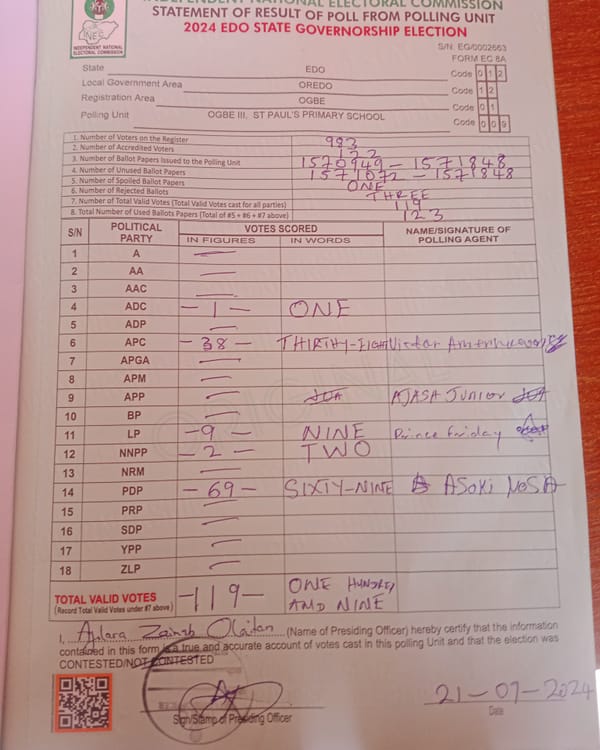 INDEPENDENT NATIONAL ELECTORAL COMMISSION
STATEMENT OF RESULT OF POLL FROM POLLING UNIT
2024 EDO STATE GOVERNORSHIP ELECTION
INEC
INDEPENDENT NATIONAL ELECTORAL COMMISSION
S/N. EG/0002663
FORM EC 8A
State EDO Code 0 1 2
Local Government Area OREDO Code 1 2
Registration Area OGBE Code 0 1
Polling Unit OGBE III, ST PAUL'S PRIMARY SCHOOL Code 0 0 9
1. Number of Voters on the Register 983
2. Number of Accredited Voters 122
3. Number of Ballot Papers Issued to the Polling Unit 1570949 - 1571848
4. Number of Unused Ballot Papers 1571072 - 1571848
5. Number of Spoiled Ballot Papers ONE
6. Number of Rejected Ballots THREE
7. Number of Total Valid Votes (Total Valid Votes cast for all parties) 119
8. Total Number of Used Ballots Papers (Total of #5 + #6 + #7 above) 123
S/N POLITICAL PARTY VOTES SCORED NAME/SIGNATURE OF POLLING AGENT
IN FIGURES IN WORDS
1 A —
2 AA —
3 AAC —
4 ADC - 1 - ONE
5 ADP —
6 APC - 38 - THIRTHY-EIGHT Victor
7 APGA —
8 APM —
9 APP — AJASA JUNIOR
10 BP —
11 LP - 9 - NINE Prince Friday
12 NNPP - 2 - TWO
13 NRM —
14 PDP - 69 - SIXTY-NINE ASOKI NOSA
15 PRP —
16 SDP —
17 YPP —
18 ZLP —
TOTAL VALID VOTES
(Record Total Valid Votes under #7 above) - 119 - ONE HUNDRED AND NINE
I, Zainab Olaitan (Name of Presiding Officer) hereby certify that the information
contained in this form is a true and accurate account of votes cast in this polling Unit and that the election was
CONTESTED/NOT CONTESTED
Sign/Stamp of Presiding Officer
21-09-2024
Date